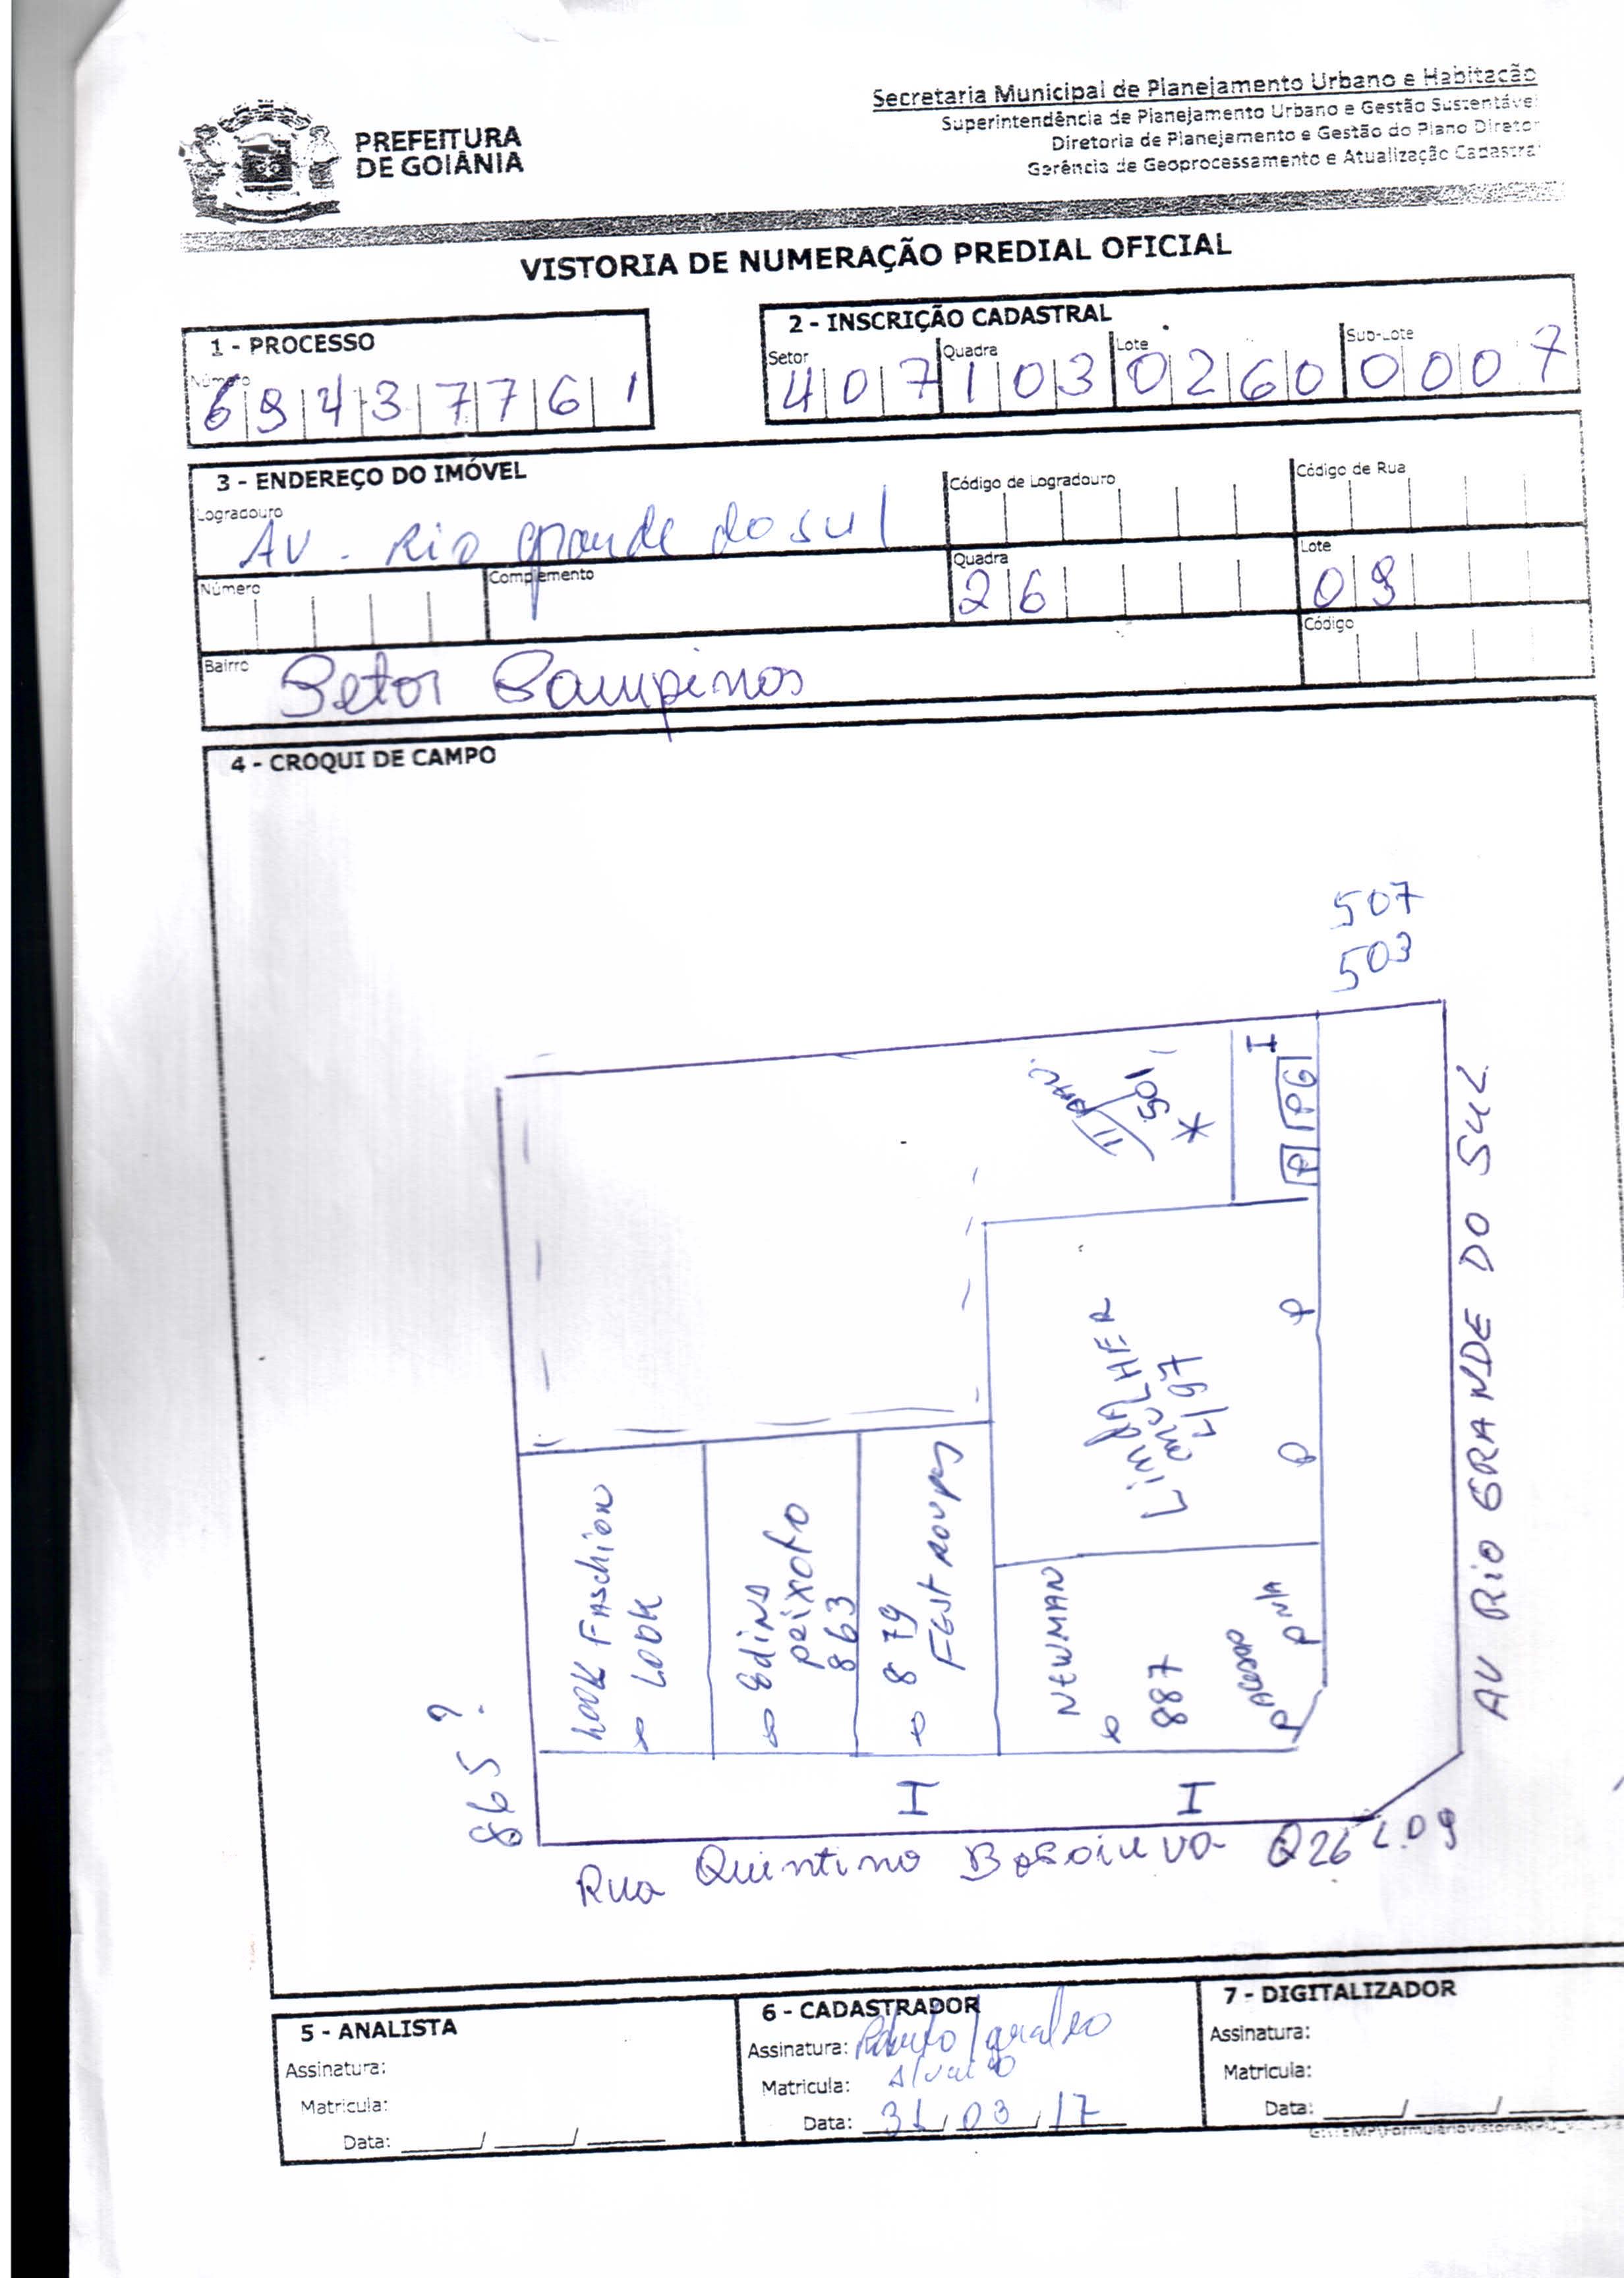 PREFEITURA
DE GOIÂNIA
Secretaria Municipal de Planejamento Urbano e Habitação
Superintendência de Planejamento Urbano e Gestão Sustentável
Diretoria de Planejamento e Gestão do Plano Diretor
Gerência de Geoprocessamento e Atualização Cadastral
VISTORIA DE NUMERAÇÃO PREDIAL OFICIAL
1 - PROCESSO
Número
69437761
2 - INSCRIÇÃO CADASTRAL
Setor Quadra Lote Sub-Lote
407 103 0260 0007
3 - ENDEREÇO DO IMÓVEL
Logradouro Código de Logradouro Código de Rua
AV - Rio grande do sul
Número Complemento Quadra Lote
26 09
Bairro Código
Setor Campinas
4 - CROQUI DE CAMPO
507
503
501
I
P PG
LindALHER
mulHER
497
P
P
LOOK FAschion
LOOK
Edina
peixoto
863
879
FEST ROUPAS
NEWMAN
887
P Acesso
P N/A
865 ?
I I
AV RIO GRANDE DO SUL
Rua Quintino Bocaiuva Q26 L.09
5 - ANALISTA
Assinatura:
Matrícula:
Data: ___/___/___
6 - CADASTRADOR
Assinatura:
Matrícula:
Data: 31/03/17
7 - DIGITALIZADOR
Assinatura:
Matrícula:
Data: ___/___/___